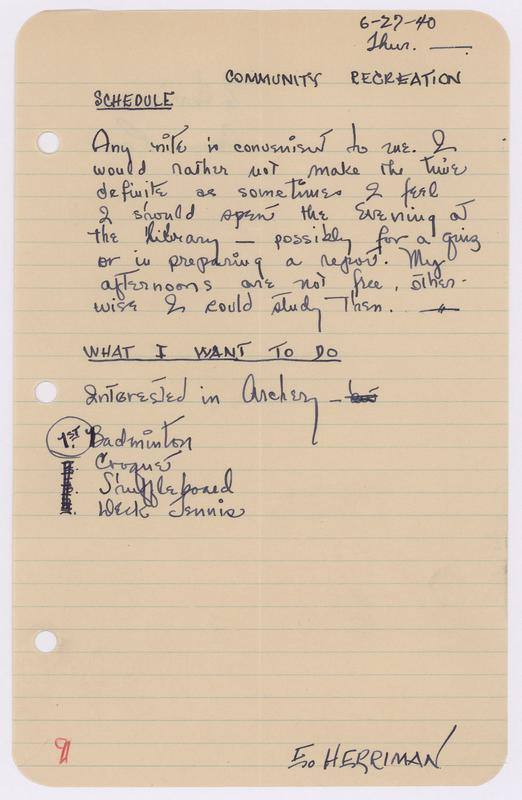 6-27-40
Thur. —
COMMUNITY RECREATION
SCHEDULE
Any nite is convenient to me. I
would rather not make the time
definite as sometimes I feel
I should spent the Evening at
the library — possibly for a quiz
or in preparing a report. My
afternoons are not free, other-
wise I could study Then. —
WHAT I WANT TO DO
Interested in Archery –
1ST Badminton
Croquet
Shuffleboard
Deck Tennis
9
E. HERRIMAN